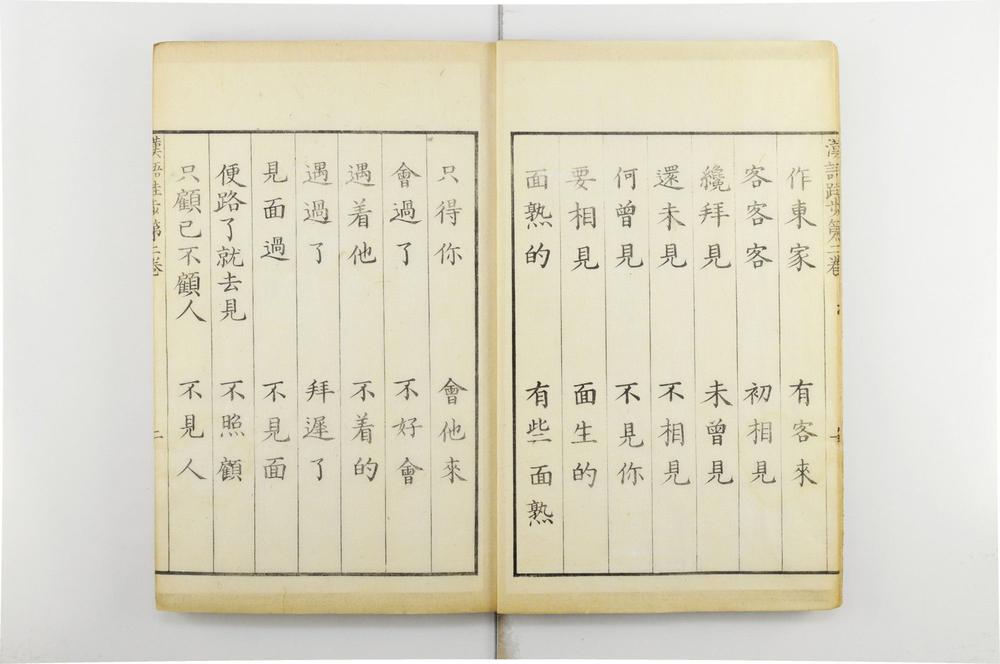 作東家 有客來
客客客 初相見
纔拜見 未曾見
還未見 不相見
何曾見 不見你
要相見 面生的
面熟的 有些面熟
只得你 會他來
會過了 不好會
遇着他 不着的
遇過了 拜遲了
見面過 不見面
便路了就去見 不照顧
只顧己不顧人 不見人
漢語跬步第二卷 二